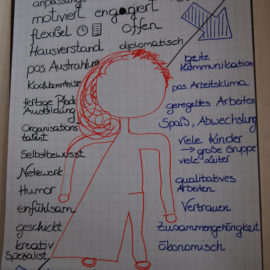 motiviert engagiert
flexibel offen
Hausverstand diplomatisch
pos. Ausstrahlung
gute
Kommunikation
Kochkenntnisse
pos. Arbeitsklima
fertige Päda
Ausbildung
geregeltes Arbeiten
Organisations
talent
Spaß, Abwechslung
Selbstbewusst
viele Kinder
→ große Gruppe
viele Leiter
Netzwerk
Humor
qualitatives
Arbeiten
einfühlsam
Vertrauen
geschickt
Zusammengehörigkeit
kreativ
ökonomisch
Spezialist